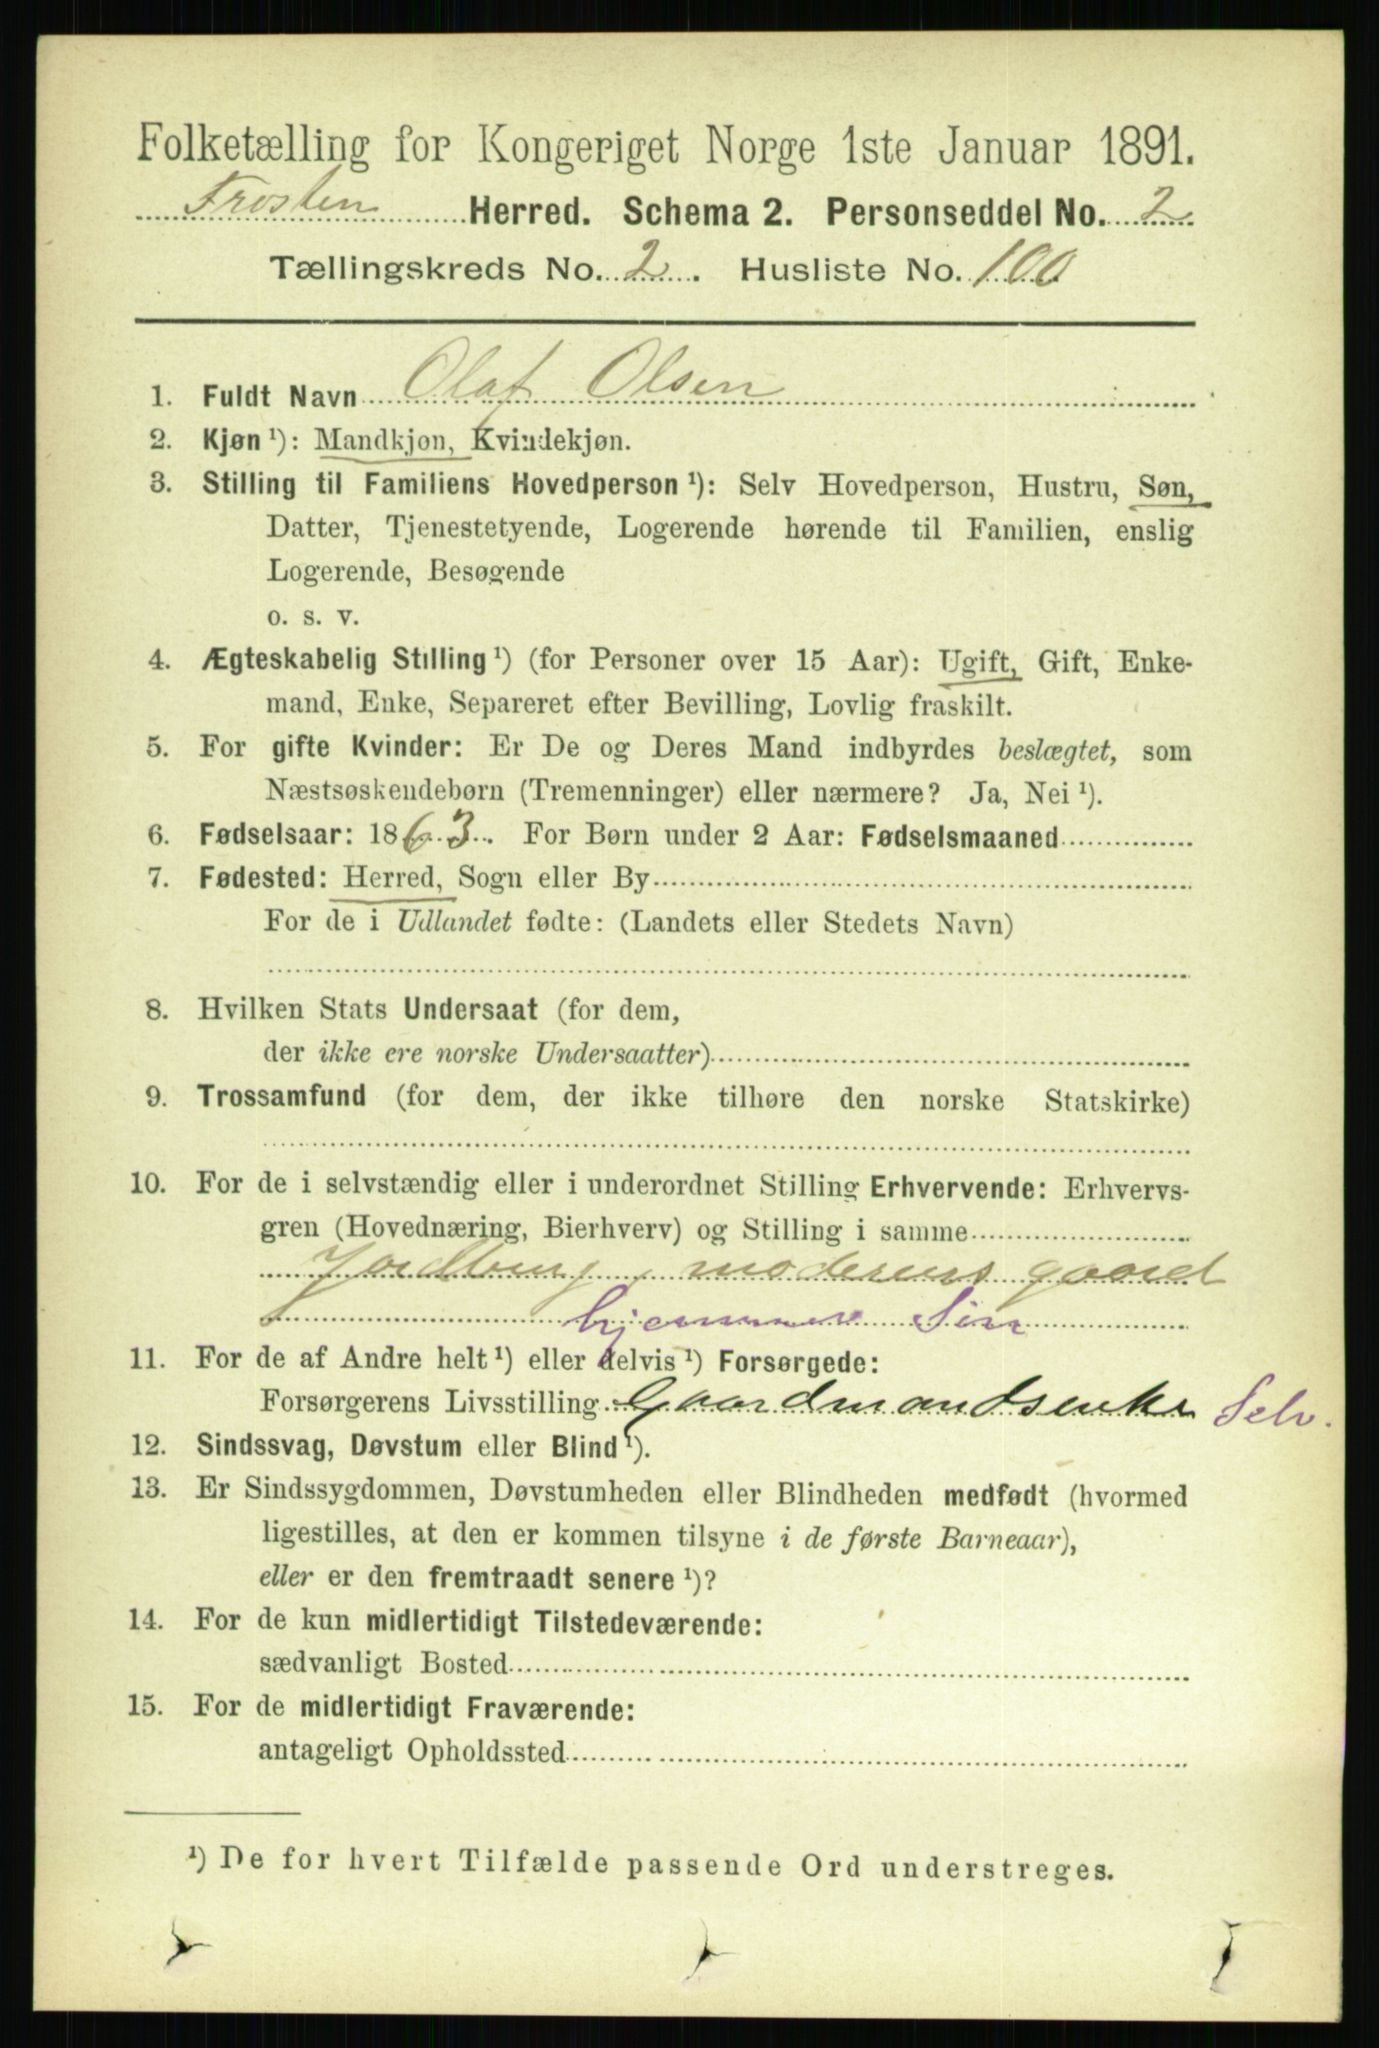 Folketælling for Kongeriget Norge 1ste Januar 1891.
Frosten Herred. Schema 2. Personseddel No. 2
Tællingskreds No. 2. Husliste No. 100
1. Fuldt Navn Olaf Olsen
2. Kjøn ¹): Mandkjøn, Kvindekjøn.
3. Stilling til Familiens Hovedperson ¹): Selv Hovedperson, Hustru, Søn,
Datter, Tjenestetyende, Logerende hørende til Familien, enslig
Logerende, Besøgende
o. s. v.
4. Ægteskabelig Stilling ¹) (for Personer over 15 Aar): Ugift, Gift, Enke-
mand, Enke, Separeret efter Bevilling, Lovlig fraskilt.
5. For gifte Kvinder: Er De og Deres Mand indbyrdes beslægtet, som
Næstsøskendebørn (Tremenninger) eller nærmere? Ja, Nei ¹).
6. Fødselsaar: 1863. For Børn under 2 Aar: Fødselsmaaned
7. Fødested: Herred, Sogn eller By
For de i Udlandet fødte: (Landets eller Stedets Navn)
8. Hvilken Stats Undersaat (for dem,
der ikke ere norske Undersaatter)
9. Trossamfund (for dem, der ikke tilhøre den norske Statskirke)
10. For de i selvstændig eller i underordnet Stilling Erhvervende: Erhvervs-
gren (Hovednæring, Bierhverv) og Stilling i samme
Jordbrug, moderens gaard
hjemmev Søn
11. For de af Andre helt ¹) eller delvis ¹) Forsørgede:
Forsørgerens Livsstilling Gaardmandsenke Selv.
12. Sindssvag, Døvstum eller Blind ¹).
13. Er Sindssygdommen, Døvstumheden eller Blindheden medfødt (hvormed
ligestilles, at den er kommen tilsyne i de første Barneaar),
eller er den fremtraadt senere ¹)?
14. For de kun midlertidigt Tilstedeværende:
sædvanligt Bosted
15. For de midlertidigt Fraværende:
antageligt Opholdssted
¹) De for hvert Tilfælde passende Ord understreges.